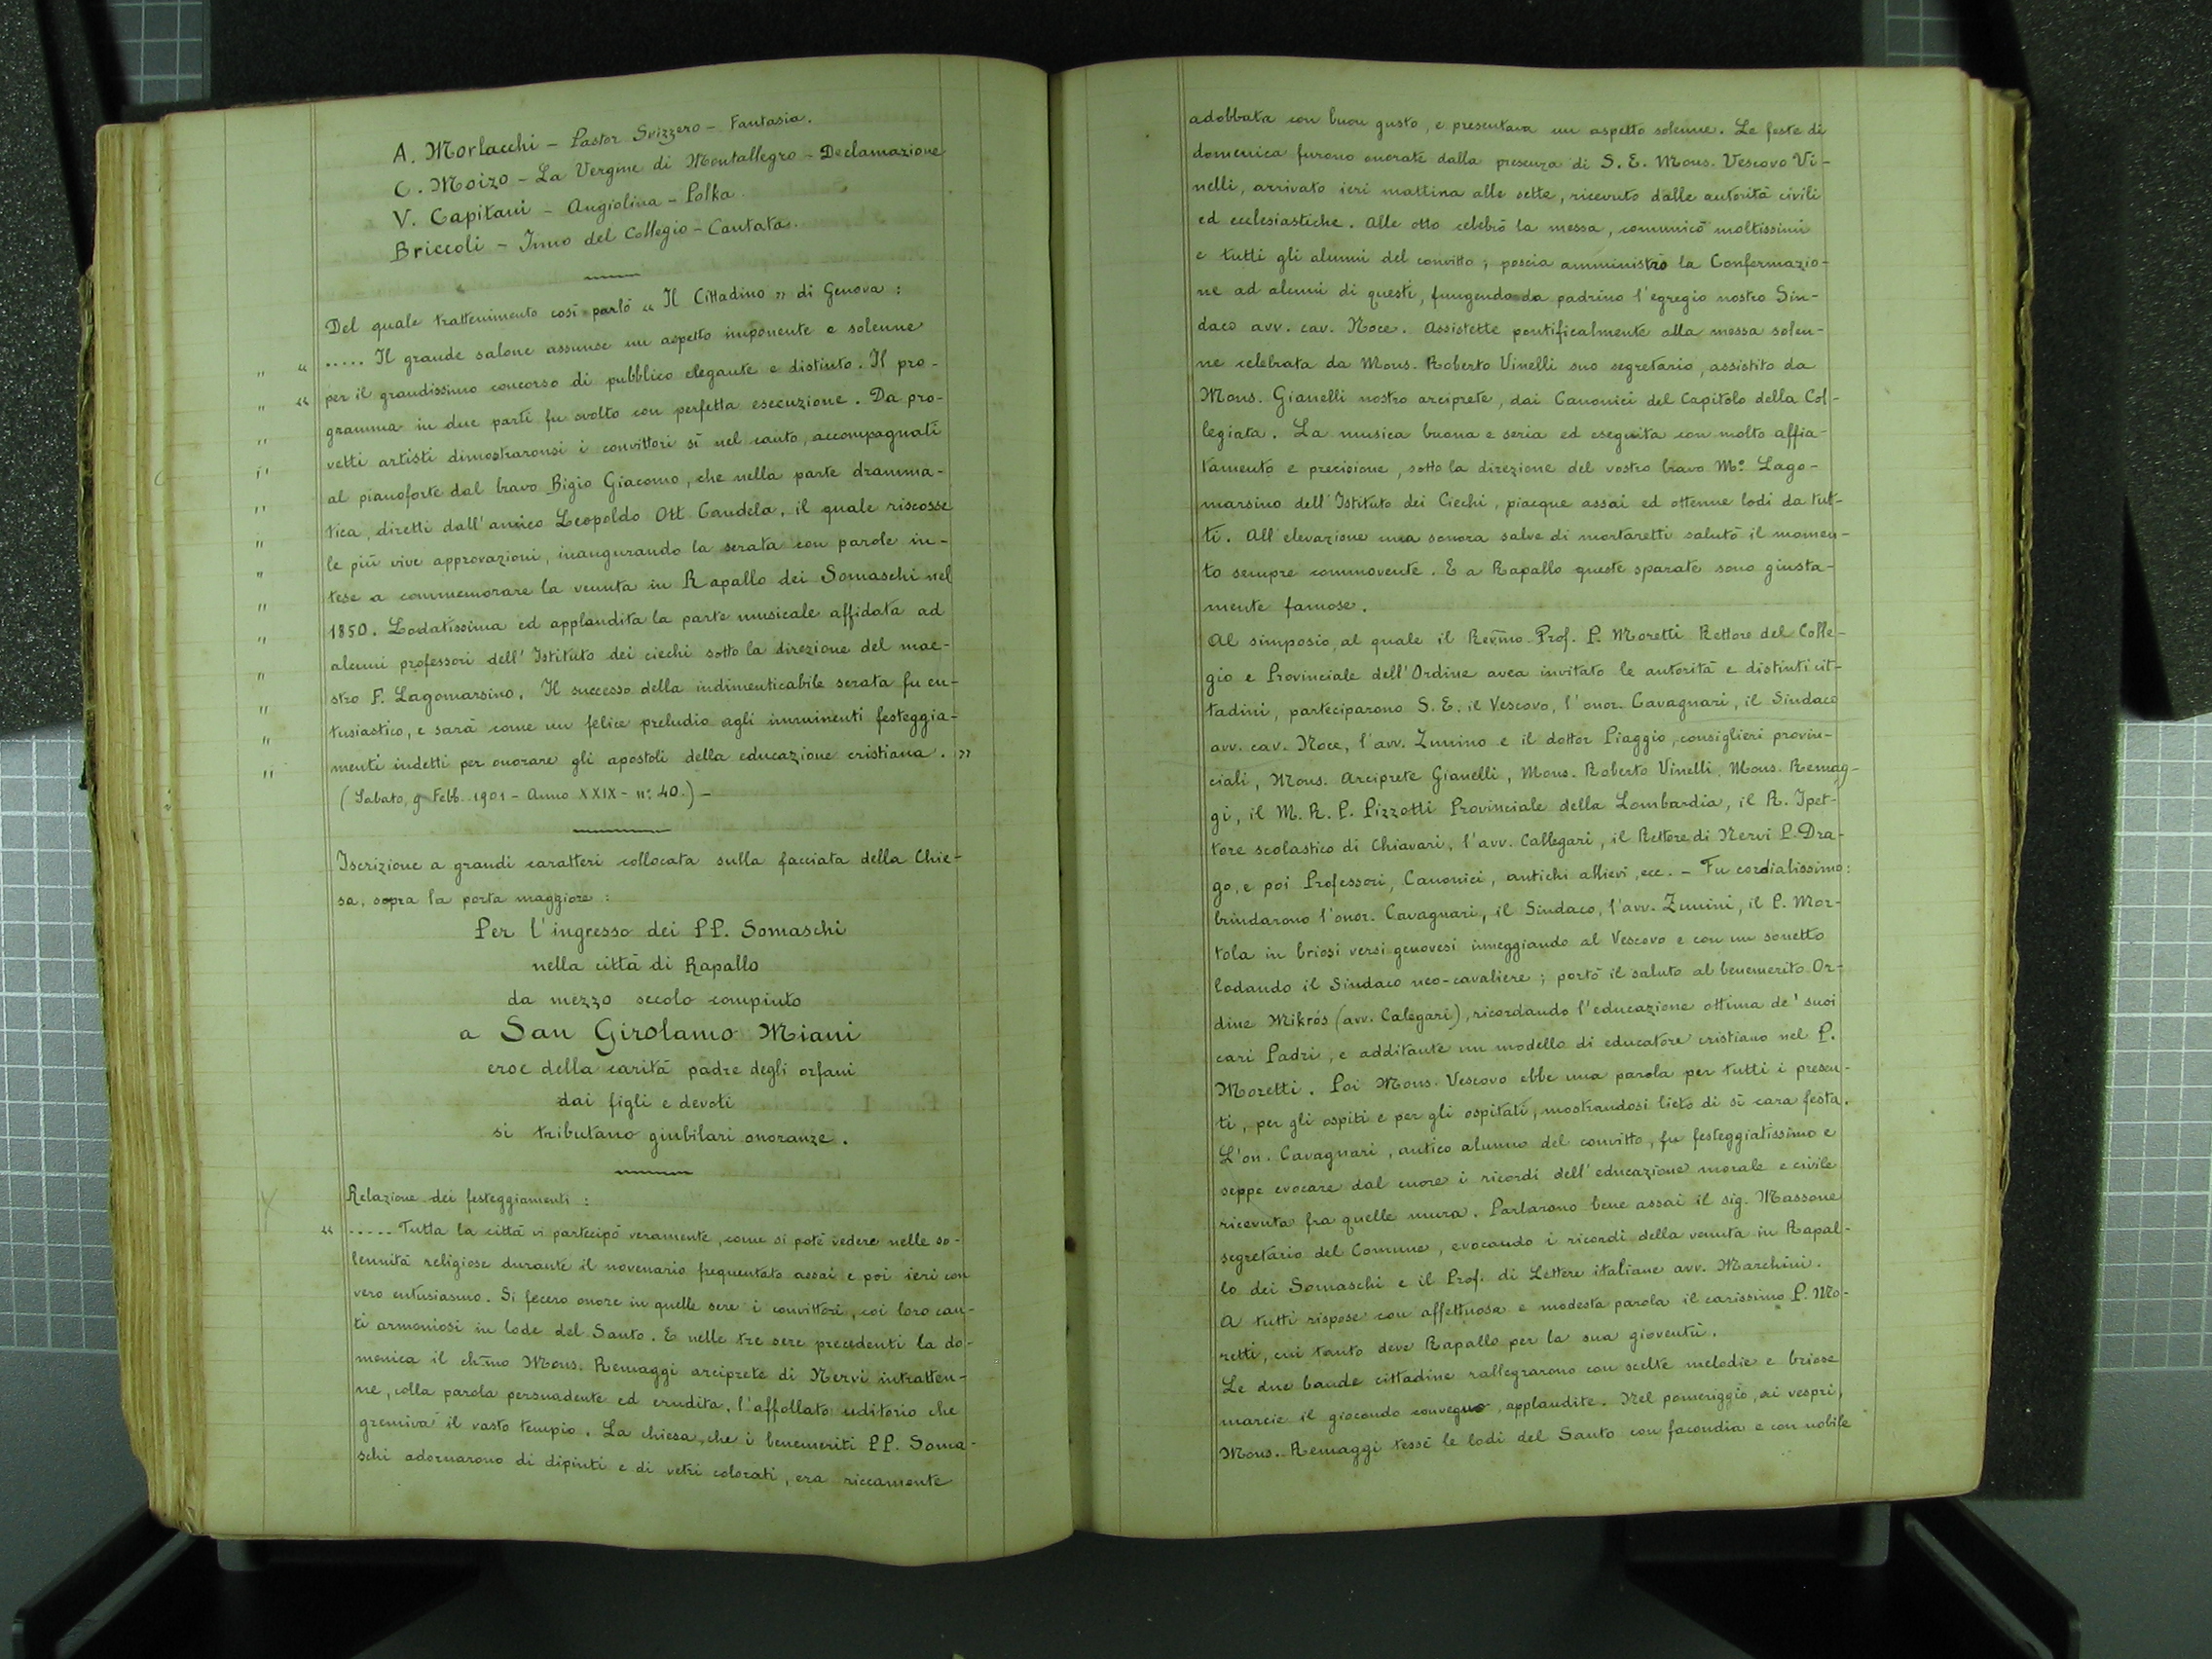 A. Morlacchi - Pastor Svizzero - Fantasia.
C. Moizo - La Vergine di Montallegro - Declamazione
V. Capitani - Angiolina - Polka
Briccoli - Inno del Collegio - Cantata.
Del quale trattenimento così parlò " Il Cittadino " di Genova :
" " ..... Il grande salone assunse un aspetto imponente e solenne
" " per il grandissimo concorso di pubblico elegante e distinto. Il pro-
" gramma in due parti fu svolto con perfetta esecuzione. Da pro-
" vetti artisti dimostraronsi i convittori sì nel canto, accompagnati
" al pianoforte dal bravo Bigio Giacomo, che nella parte dramma-
" tica, diretti dall'amico Leopoldo Ott Candela, il quale riscosse
" le più vive approvazioni, inaugurando la serata con parole in-
" tese a commemorare la venuta in Rapallo dei Somaschi nel
" 1850. Lodatissima ed applaudita la parte musicale affidata ad
" alcuni professori dell'Istituto dei ciechi sotto la direzione del mae-
" stro F. Lagomarsino. Il successo della indimenticabile serata fu en-
" tusiastico, e sarà come un felice preludio agli imminenti festeggia-
" menti indetti per onorare gli apostoli della educazione cristiana. "
(Sabato, 9 Febb. 1901 - Anno XXIX - n.º 40.) -
Iscrizione a grandi caratteri collocata sulla facciata della Chie-
sa, sopra la porta maggiore :
Per l'ingresso dei PP. Somaschi
nella città di Rapallo
da mezzo secolo compiuto
a San Girolamo Miani
eroe della carità padre degli orfani
dai figli e devoti
si tributano giubilari onoranze.
Relazione dei festeggiamenti :
" ..... Tutta la città vi partecipò veramente, come si potè vedere nelle so-
lennità religiose durante il novenario frequentato assai e poi ieri con
vero entusiasmo. Si fecero onore in quelle sere i convittori, coi loro can-
ti armoniosi in lode del Santo. E nelle tre sere precedenti la do-
menica il ch.mo Mons. Remaggi arciprete di Nervi intratten-
ne, colla parola persuadente ed erudita, l'affollato uditorio che
gremiva il vasto tempio. La chiesa, che i benemeriti PP. Soma-
schi adornarono di dipinti e di vetri colorati, era riccamente
adobbata con buon gusto, e presentava un aspetto solenne. Le feste di
domenica furono onorate dalla presenza di S. E. Mons. Vescovo Vi-
nelli, arrivato ieri mattina alle sette, ricevuto dalle autorità civili
ed ecclesiastiche. Alle otto celebrò la messa, comunicò moltissimi
e tutti gli alunni del convitto ; poscia amministrò la Confermazio-
ne ad alcuni di questi, fungendo da padrino l'egregio nostro Sin-
daco avv. cav. Noce. Assistette pontificalmente alla messa solen-
ne celebrata da Mons. Roberto Vinelli suo segretario, assistito da
Mons. Gianelli nostro arciprete, dai Canonici del Capitolo della Col-
legiata. La musica buona e seria ed eseguita con molto affia-
tamento e precisione, sotto la direzione del vostro bravo M.º Lago-
marsino dell'Istituto dei Ciechi, piacque assai ed ottenne lodi da tut-
ti. All'elevazione una sonora salve di mortaretti salutò il momen-
to sempre commovente. E a Rapallo queste sparate sono giusta-
mente famose.
Al simposio, al quale il Rev.mo Prof. P. Moretti Rettore del Colle-
gio e Provinciale dell'Ordine avea invitato le autorità e distinti cit-
tadini, parteciparono S. E. il Vescovo, l'onor. Cavagnari, il Sindaco
avv. cav. Noce, l'avv. Zunino e il dottor Piaggio, consiglieri provin-
ciali, Mons. Arciprete Gianelli, Mons. Roberto Vinelli, Mons. Remag-
gi, il M. R. P. Pizzotti Provinciale della Lombardia, il R. Ipet-
tore scolastico di Chiavari, l'avv. Callegari, il Rettore di Nervi P. Dra-
go, e poi Professori, Canonici, antichi allievi, ecc. - Fu cordialissimo:
brindarono l'onor. Cavagnari, il Sindaco, l'avv. Zunini, il P. Mor-
tola in briosi versi genovesi inneggiando al Vescovo e con un sonetto
lodando il Sindaco neo-cavaliere ; portò il saluto al benemerito Or-
dine Mikrós (avv. Calegari), ricordando l'educazione ottima de' suoi
cari Padri, e additante un modello di educatore cristiano nel P.
Moretti. Poi Mons. Vescovo ebbe una parola per tutti i presen-
ti, per gli ospiti e per gli ospitati, mostrandosi lieto di sì cara festa.
L'on. Cavagnari, antico alunno del convitto, fu festeggiatissimo e
seppe evocare dal cuore i ricordi dell'educazione morale e civile
ricevuta fra quelle mura. Parlarono bene assai il sig. Massone
segretario del Comune, evocando i ricordi della venuta in Rapal-
lo dei Somaschi e il Prof. di Lettere italiane avv. Marchini.
A tutti rispose con affettuosa e modesta parola il carissimo P. Mo-
retti, cui tanto deve Rapallo per la sua gioventù.
Le due bande cittadine rallegrarono con scelte melodie e briose
marcie il giocondo convegno, applaudite. Nel pomeriggio, ai vespri,
Mons. Remaggi tessè le lodi del Santo con facondia e con nobile